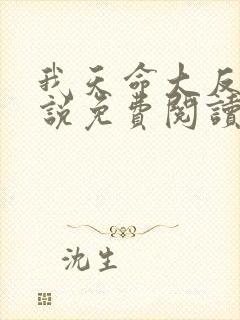 我天命大反
説免費閱讀
沈生